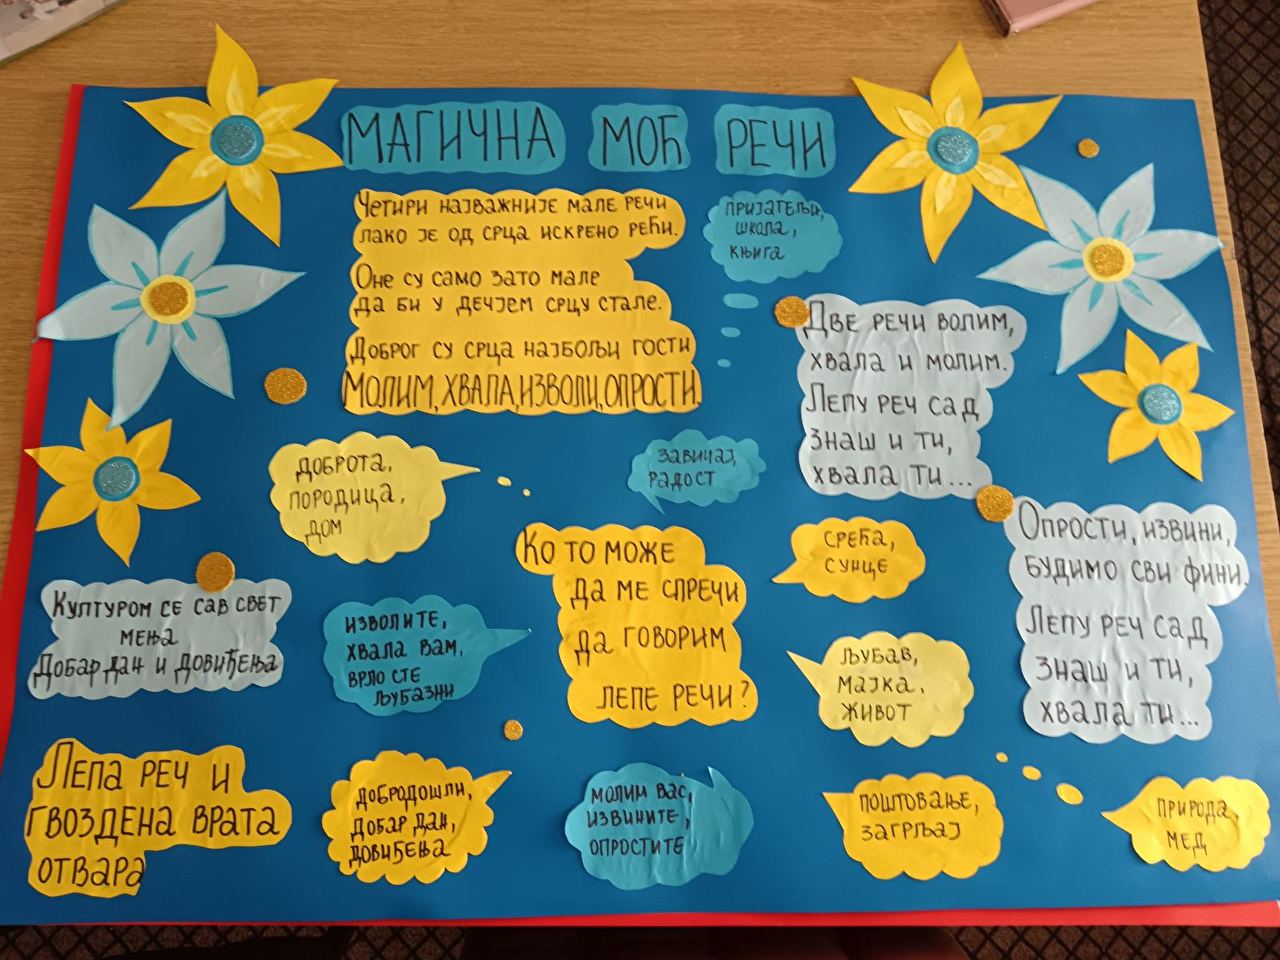 МАГИЧНА МОЋ РЕЧИ
Четири најважније мале речи
лако је од срца искрено рећи.
Оне су само зато мале
да би у дечјем срцу стале.
Доброг су срца најбољи гости
МОЛИМ, ХВАЛА, ИЗВОЛИ, ОПРОСТИ.
пријатељи,
школа,
књига
Две речи волим,
хвала и молим.
Лепу реч сад
знаш и ти,
хвала ти...
доброта,
породица,
дом
завичај,
радост
Ко то може
да ме спречи
да говорим
лепе речи?
срећа,
сунце
Опрости, извини,
будимо сви фини.
Лепу реч сад
знаш и ти,
хвала ти...
Културом се сав свет
мења
Добар дан и довиђења
изволите,
хвала вам,
врло сте
љубазни
љубав,
мајка,
живот
Лепа реч и
гвоздена врата
отвара
добродошли,
добар дан,
довиђења
молим вас,
извините,
опростите
поштовање,
загрљај
природа,
мед